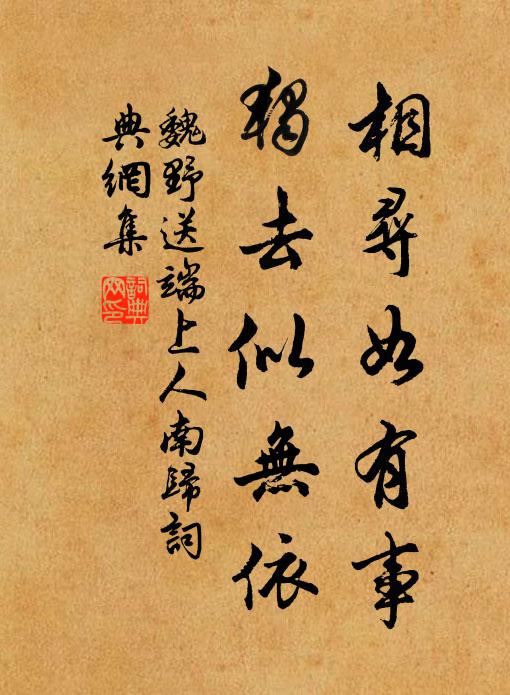 相尋如有事
獨去似無依
魏野送端上人南歸詞
典網集
詞典網印